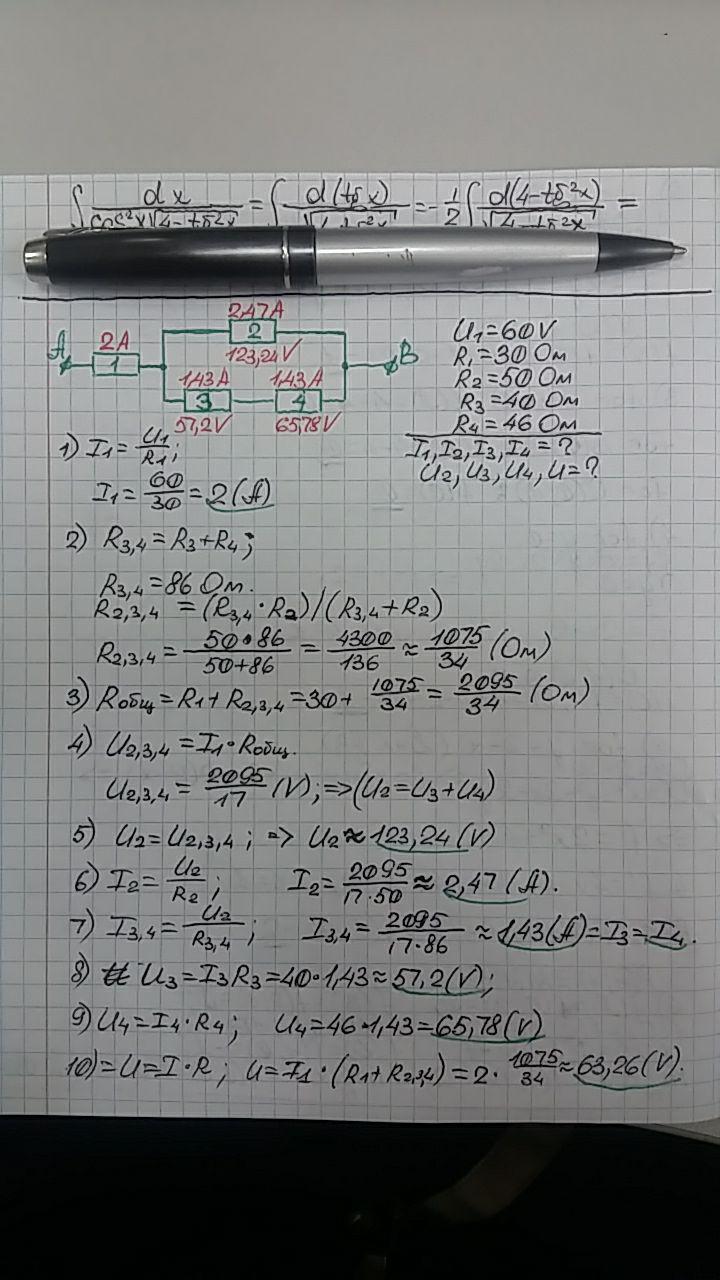 ∫ dx / cos²x√(4-tg²x) = ∫ d(tgx) / √(4-tg²x) = -1/2 ∫ d(4-tg²x) / √(4-tg²x) =
2,47A
2A 2
A 1 123,24V B
1,43A 1,43A
3 4
57,2V 65,78V
U₁=60V
R₁=30 Ом
R₂=50 Ом
R₃=40 Ом
R₄=46 Ом
I₁, I₂, I₃, I₄ = ?
U₂, U₃, U₄, U = ?
1) I₁ = U₁/R₁;
I₁ = 60/30 = 2 (A)
2) R₃,₄ = R₃+R₄;
R₃,₄ = 86 Ом.
R₂,₃,₄ = (R₃,₄·R₂)/(R₃,₄+R₂)
R₂,₃,₄ = 50·86/50+86 = 4300/136 ≈ 1075/34 (Ом)
3) Rобщ = R₁+R₂,₃,₄ = 30+ 1075/34 = 2095/34 (Ом)
4) U₂,₃,₄ = I₁·Rобщ.
U₂,₃,₄ = 2095/17 (V); => (U₂=U₃+U₄)
5) U₂=U₂,₃,₄; => U₂ ≈ 123,24 (V)
6) I₂ = U₂/R₂; I₂ = 2095/17·50 ≈ 2,47 (A).
7) I₃,₄ = U₂/R₃,₄; I₃,₄ = 2095/17·86 ≈ 1,43(A) = I₃ = I₄.
8) U₃ = I₃R₃ = 40·1,43 ≈ 57,2(V);
9) U₄ = I₄·R₄; U₄ = 46·1,43 = 65,78(V)
10) = U = I·R; U = I₁·(R₁+R₂,₃,₄) = 2· 1075/34 ≈ 63,26(V).